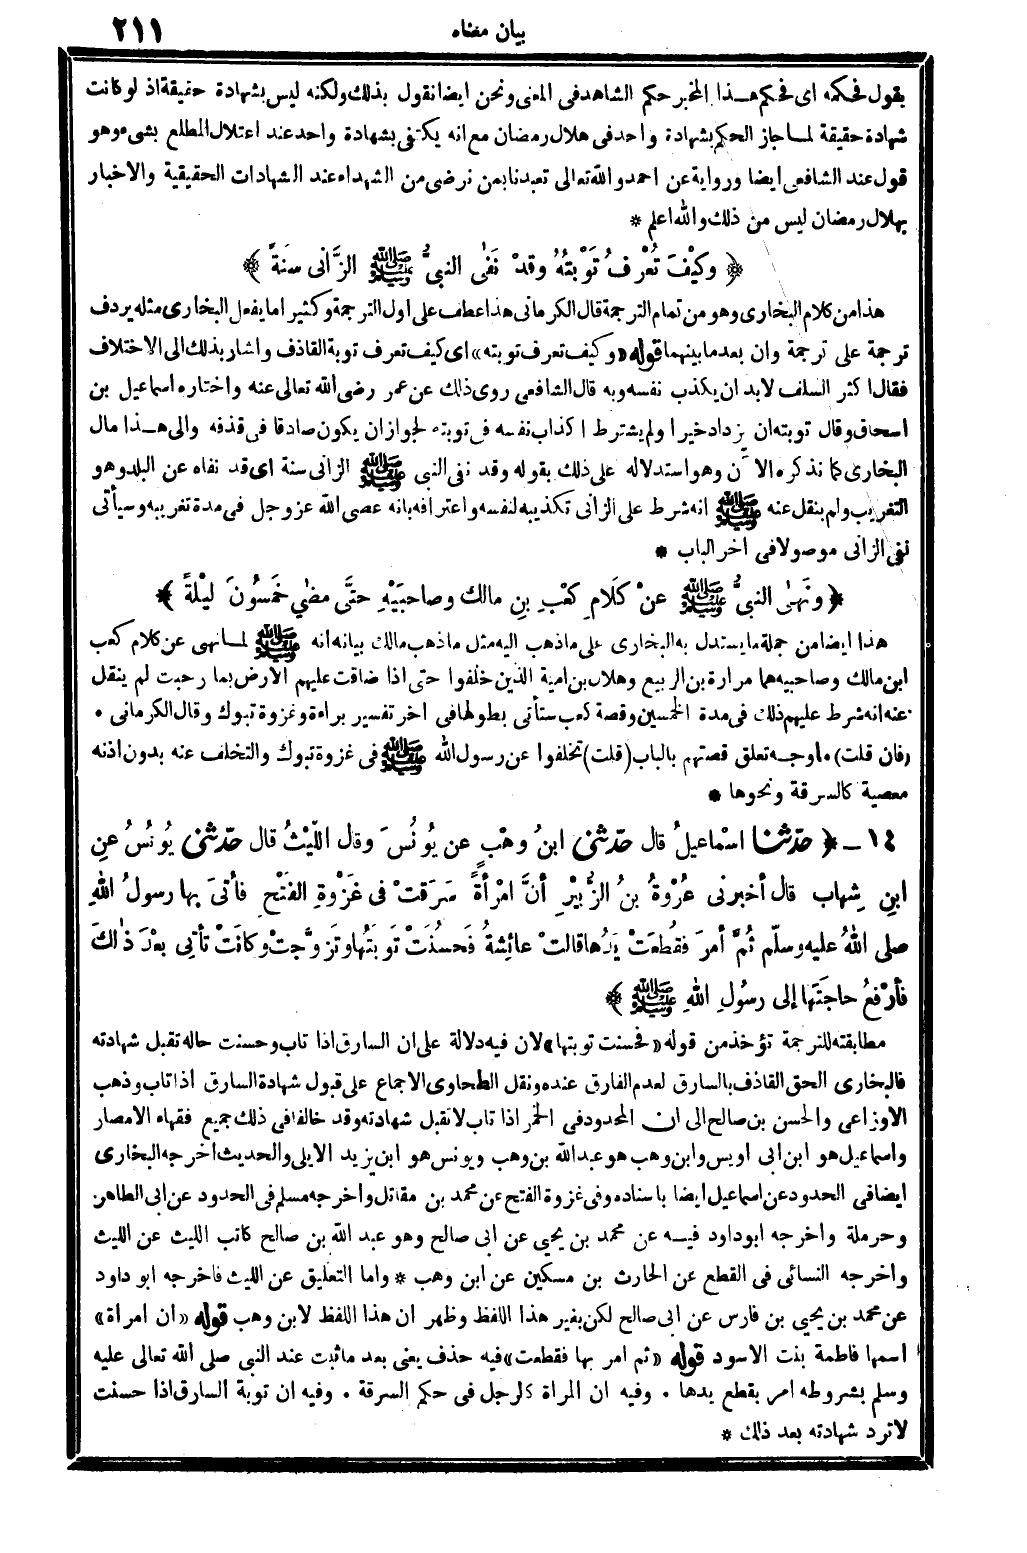 بيان معناه
٢١١
يقول فحكمه اى فحكم هذا المخبر حكم الشاهد فى المعنى ونحن ايضا نقول بذلك ولكنه ليس بشهادة حقيقة اذ لو كانت
شهادة حقيقة لما جاز الحكم بشهادة واحد فى هلال رمضان مع انه يكتفى بشهادة واحد عند اعتلال المطلع بشىء وهو
قول عند الشافعى ايضا ورواية عن احمد والله تعالى تعبدنا بمن نرضى من الشهداء عند الشهادات الحقيقية والاخبار
بهلال رمضان ليس من ذلك والله اعلم *
﴿ وكَيْفَ تُعْرفُ تَوْبتُهُ وقدْ نَفَى النبىُّ ﷺ الزَّانى سنَةً ﴾
هذا من كلام البخارى وهو من تمام الترجمة قال الكرمانى هذا عطف على اول الترجمة وكثيرا ما يفعل البخارى مثله يردف
ترجمة على ترجمة وان بعد ما بينهما قوله «وكيف تعرف توبته» اى كيف تعرف توبة القاذف واشار بذلك الى الاختلاف
فقال اكثر السلف لا بد ان يكذب نفسه وبه قال الشافعى روى ذلك عن عمر رضى الله تعالى عنه واختاره اسماعيل بن
اسحاق وقال توبته ان يزداد خيرا ولم يشترط اكذاب نفسه فى توبته لجواز ان يكون صادقا فى قذفه والى هذا مال
البخارى كما نذكره الآن وهو استدلاله على ذلك بقوله وقد نفى النبى ﷺ الزانى سنة اى قد نفاه عن البلد وهو
التغريب ولم ينقل عنه ﷺ انه شرط على الزانى تكذيبه لنفسه واعترافه بانه عصى الله عز وجل فى مدة تغريبه وسيأتى
نفى الزانى موصولا فى اخر الباب *
﴿ ونَهى النبىُّ ﷺ عنْ كلَامِ كَعْبِ بنِ مالك وصاحبَيْهِ حتَّى مضَى خَمْسُونَ ليْلَةً ﴾
هذا ايضا من جملة ما يستدل به البخارى على ما ذهب اليه مثل ما ذهب مالك بيانه انه ﷺ لما نهى عن كلام كعب
ابن مالك وصاحبيه هما مرارة بن الربيع وهلال بن امية الذين خلفوا حتى اذا ضاقت عليهم الارض بما رحبت لم ينقل
عنه انه شرط عليهم ذلك فى مدة الخمسين وقصة كعب ستأتى بطولها فى اخر تفسير براءة وغزوة تبوك وقال الكرمانى .
(فان قلت) ما وجه تعلق قصتهم بالباب (قلت) تخلفوا عن رسول الله ﷺ فى غزوة تبوك والتخلف عنه بدون اذنه
معصية كالسرقة ونحوها *
١٤ ـ ﴿ حدّثنا اسْماعيلُ قال حدّثنى ابنُ وهْبٍ عن يُونُسَ وقال اللّيْثُ قال حدّثنى يُونُسُ عنِ
ابنِ شِهاب قال أخبرنى عُرْوةُ بنُ الزُّبيْرِ أنَّ امْرأةً سَرقتْ فى غَزْوةِ الفَتْحِ فأتىَ بها رسولُ اللهِ
صلى اللهُ عليه وسلّم ثُمَّ أمرَ فقُطعَتْ يَدُها قالتْ عائِشةُ فَحسُنَتْ تَوبتُها وتَزوَّجتْ وكانَتْ تأتِى بعْدَ ذٰلكَ
فأرْفعُ حاجَتَها إلى رسُولِ اللهِ ﷺ ﴾
مطابقته للترجمة تؤخذ من قوله «فحسنت توبتها» لان فيه دلالة على ان السارق اذا تاب وحسنت حاله تقبل شهادته
فالبخارى الحق القاذف بالسارق لعدم الفارق عنده ونقل الطحاوى الاجماع على قبول شهادة السارق اذا تاب وذهب
الاوزاعى والحسن بن صالح الى ان المحدود فى الخمر اذا تاب لا تقبل شهادته وقد خالفا فى ذلك جميع فقهاء الامصار
واسماعيل هو ابن ابى اويس وابن وهب هو عبد الله بن وهب ويونس هو ابن يزيد الايلى والحديث اخرجه البخارى
ايضا فى الحدود عن اسماعيل ايضا باسناده وفى غزوة الفتح عن محمد بن مقاتل واخرجه مسلم فى الحدود عن ابى الطاهر
وحرملة واخرجه ابو داود فيه عن محمد بن يحيى عن ابى صالح وهو عبد الله بن صالح كاتب الليث عن الليث
واخرجه النسائى فى القطع عن الحارث بن مسكين عن ابن وهب * واما التعليق عن الليث فاخرجه ابو داود
عن محمد بن يحيى بن فارس عن ابى صالح لكن بغير هذا اللفظ وظهر ان هذا اللفظ لابن وهب قوله «ان امرأة»
اسمها فاطمة بنت الاسود قوله «ثم امر بها فقطعت» فيه حذف يعنى بعد ما ثبت عند النبى صلى الله تعالى عليه
وسلم بشروطه امر بقطع يدها . وفيه ان المرأة كالرجل فى حكم السرقة . وفيه ان توبة السارق اذا حسنت
لا ترد شهادته بعد ذلك *